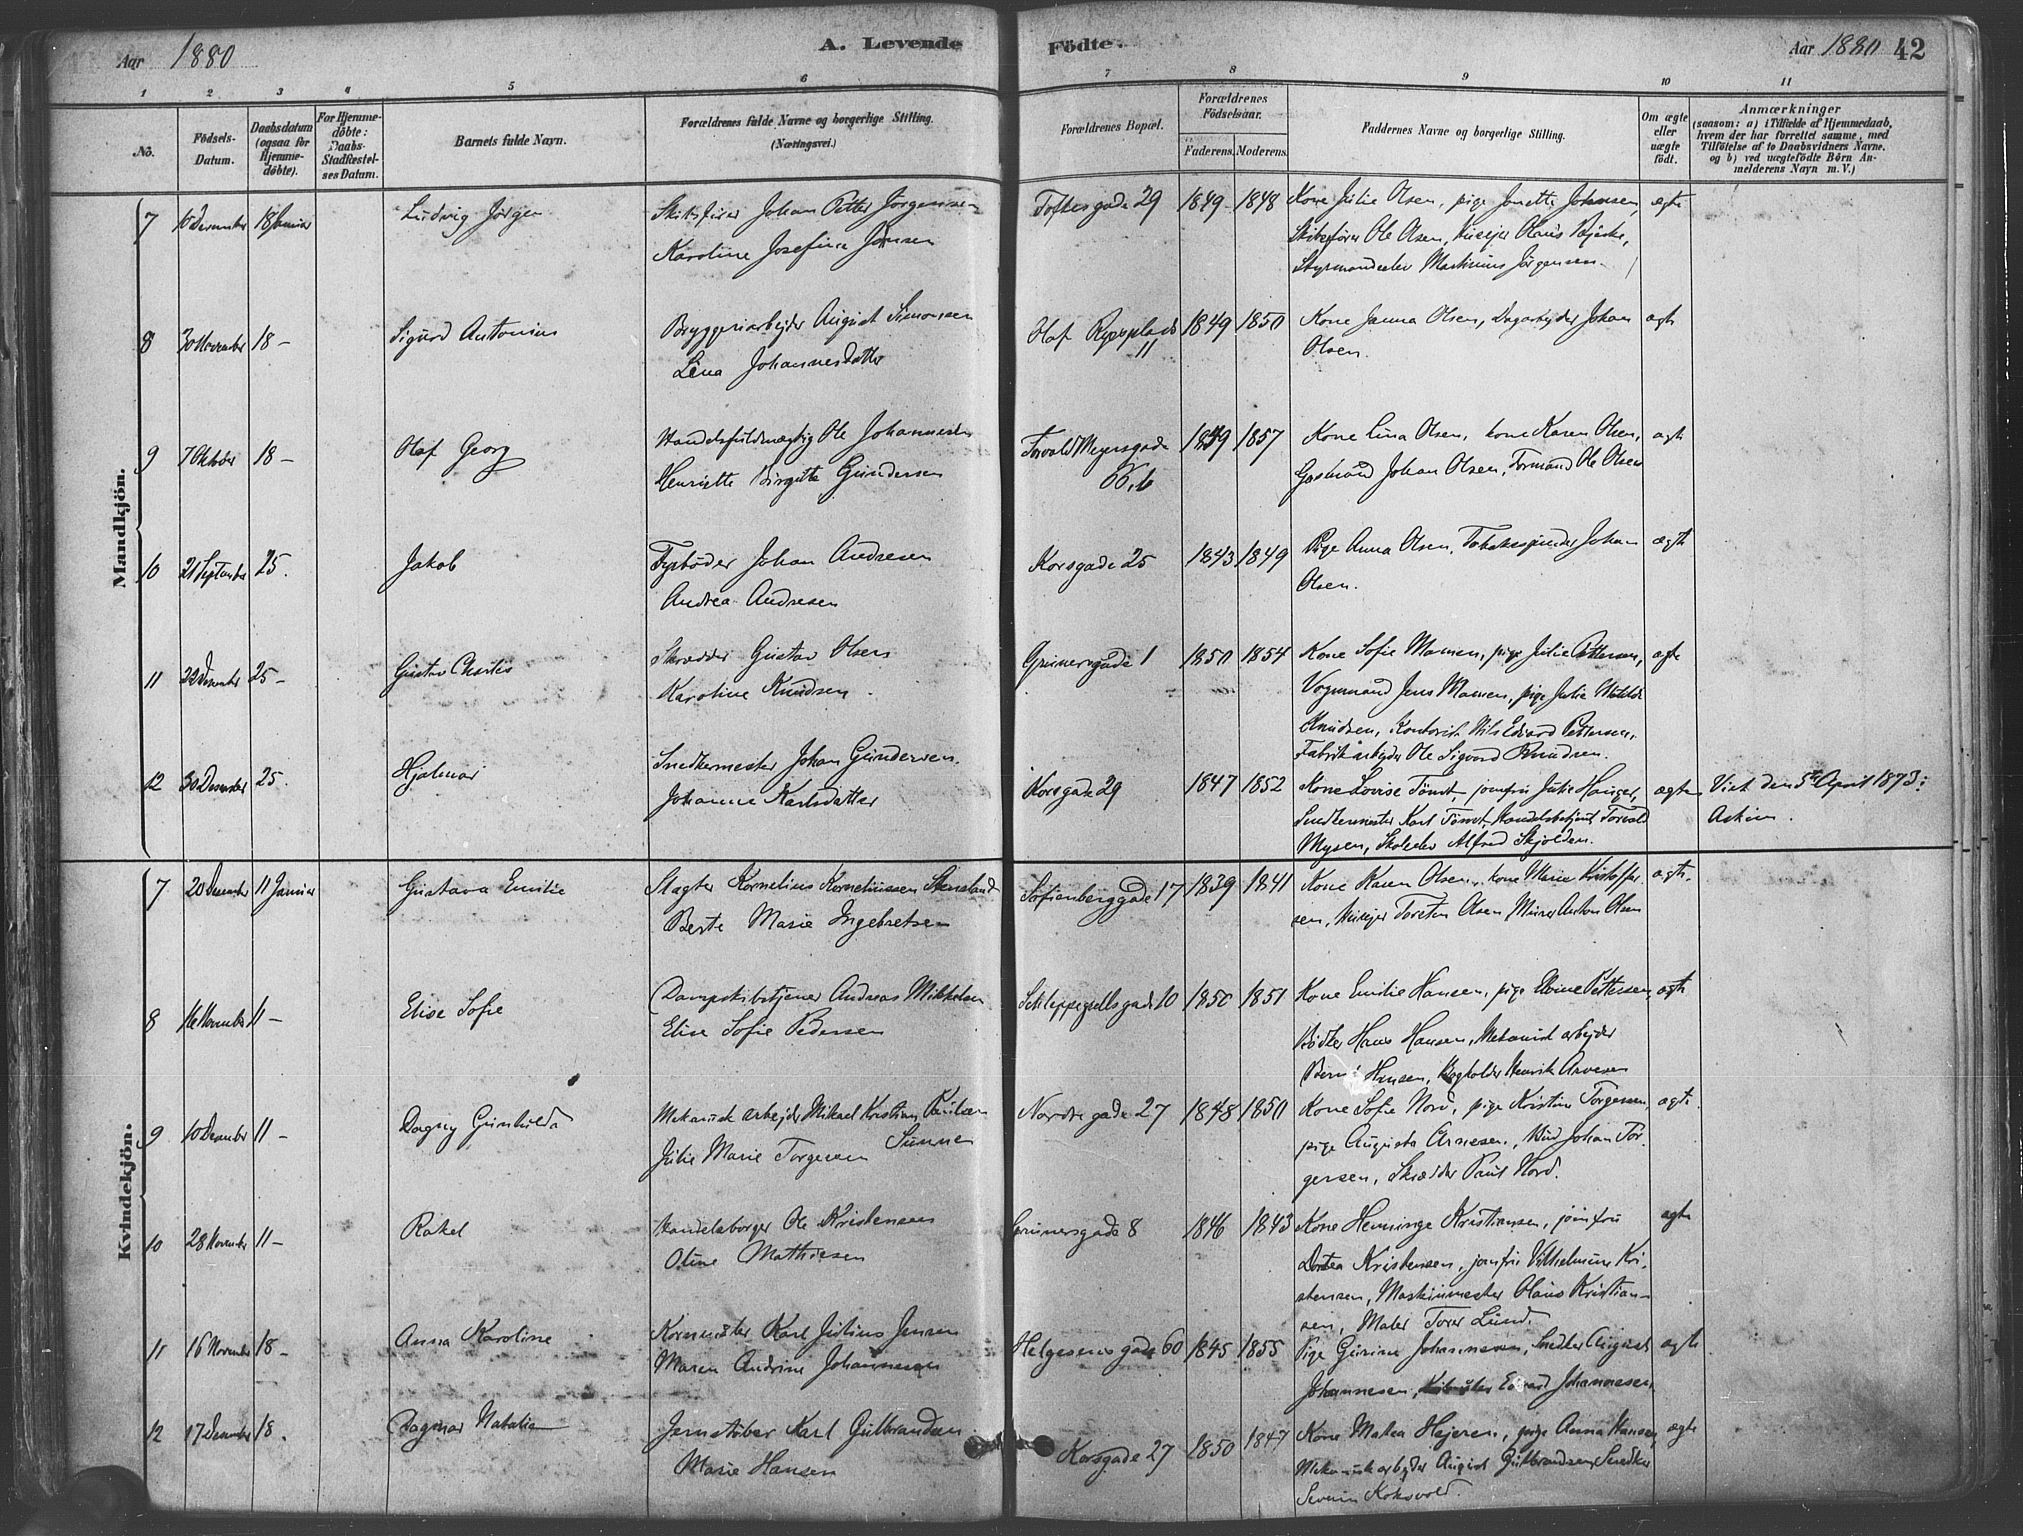 Aar 1880 A. Levende
Fødte. Aar 1880 42
1 2 3 4 5 6 7 8 9 10 11
No.
Fødsels-
Datum.
Daabsdatum
(ogsaa for
Hjemme-
døbte).
For Hjemme-
døbte:
Daabs-
Stadfæstel-
ses Datum.
Barnets fulde Navn.
Forældrenes fulde Navne og borgerlige Stilling.
(Næringsvei.)
Forældrenes Bopæl.
Forældrenes
Fødselsaar.
Faderens. Moderens.
Faddernes Navne og borgerlige Stilling.
Om ægte
eller
uægte
født.
Anmærkninger
(saasom: a) i Tilfælde af Hjemmedaab,
hvem der har forrettet samme, med
Tilføielse af to Daabsvidners Navne.
og b) ved uægtefødte Børn An-
melderens Navn m. V.)
Mandkjön.
7 10 Desember 18 Januar Ludvig Jørgen Skibsfører Johan Petter Jørgensen
Karoline Josefine Jonsen
Toftesgade 29 1849 1848 Kone Julie Olsen, pige Jonette Johnsen, ægte
Skibsfører Ole Olsen, Huseier Olaus
Styrmandselev Martinius Jörgensen.
8 30 November 18 – Sigurd Antonius Bryggeriarbejder August Simonsen
Lena Johannesdatter
Olaf Ryesplads 1849 1850 Kone Janna Olsen, Dagarbejder Johan ægte
11
Olsen.
9 7 Oktober 18 – Olaf Georg Handelsfuldmægtig Ole Johannesen
Henriette Birgitte Gundersen
Torvald Meyersgade 1849 1857 Kone Lina Olsen, kone Karen Olsen, ægte
66, b
Johan Olsen, Formand Ole Olsen
10 21 September 25. Jakob Fyrbøder Johan Andresen
Andrea Andresen
Korsgade 25 1843 1849 Pige Anna Olsen, Tobakspinder Johan ægte
Olsen.
11 22 Desember 25 – Gustav Charles Skrædder Gustav Olsen
Karoline Knudsen.
Grünersgade 1 1850 1854 Kone Sofie Mamen, pige Julie Pettersen, ægte
Vognmand Jens Mamen, pige Julie Matilde
Knudsen, Kontorist Nils Edvard Pettersen,
Fabrikarbejder Ole Sigvard Knudsen.
12 30 Desember 25. Hjalmar Snedkermester Johan Gundersen.
Johanne Karlsdatter
Korsgade 29 1847 1852 Kone Lovise Tömt, jomfru Julie Hauger, ægte Viet den 5te April 1873 i
Snedkermester Karl Tömt, Handelsbetjent Torvald Askim.
Mysen, Skoleelev Alfred Skjolden.
Kvindekjön.
7 20 Desember 11 Januar Gustava Emilie Slagter Kornelius Korneliussen Stensland
Berte Marie Ingebretsen
Sofienberggade 17 1839 1841 Kone Karen Olsen, kone Marie Kristoffer- ægte.
sen, Huseier Torsten Olsen, Murer Anton Olsen
8 16 November 11 – Elise Sofie Dampskibstjener Andreas Mikkelsen
Elise Sofie Pedersen
Schleppegrellsgade 10 1850 1851 Kone Emilie Hansen, pige Elvine Pettersen, ægte
Bødker Hans Hansen, Mekanisk arbejder
Hansen, Bogholder Henrik Arvesen
9 10 Desember 11 – Dagny Gunhilda Mekanisk arbejder Mikael Kristian Paulsen
Sunne
Julie Marie Torgersen
Nordre gade 27 1848 1850 Kone Sofie Nord, pige Kristine Torgersen, ægte.
pige Augusta Arnesen, Bud Johan Tor-
gersen, Skrædder Paul Nord.
10 28 November 11 – Rakel Handelsborger Ole Kristensen
Oline Mathiesen
Grünersgade 8 1846 1843 Kone Henninge Kristiansen, jomfru ægte
Dortea Kristensen, jomfru Vilhelmine Kri-
stensen, Maskinmester Olaus Kristian-
sen, Maler Torer Lund.
11 16 November 18 – Anna Karoline Kornmåler Karl Julius Jensen
Maren Andrine Johannesen
Helgesens gade 60 1845 1855 Pige Gurine Johannesen, Snedker August ægte
Johannesen, Edvard Johannesen,
12 17 Desember 18. Dagmar Natalia Jernstøber Karl Gulbrandsen
Marie Hansen
Korsgade 27 1850 1847 Kone Matea Hejeren, pige Anna Hansen, ægte
Mekanisk arbejder August Gulbrandsen, Snedker
Severin Koksvold.